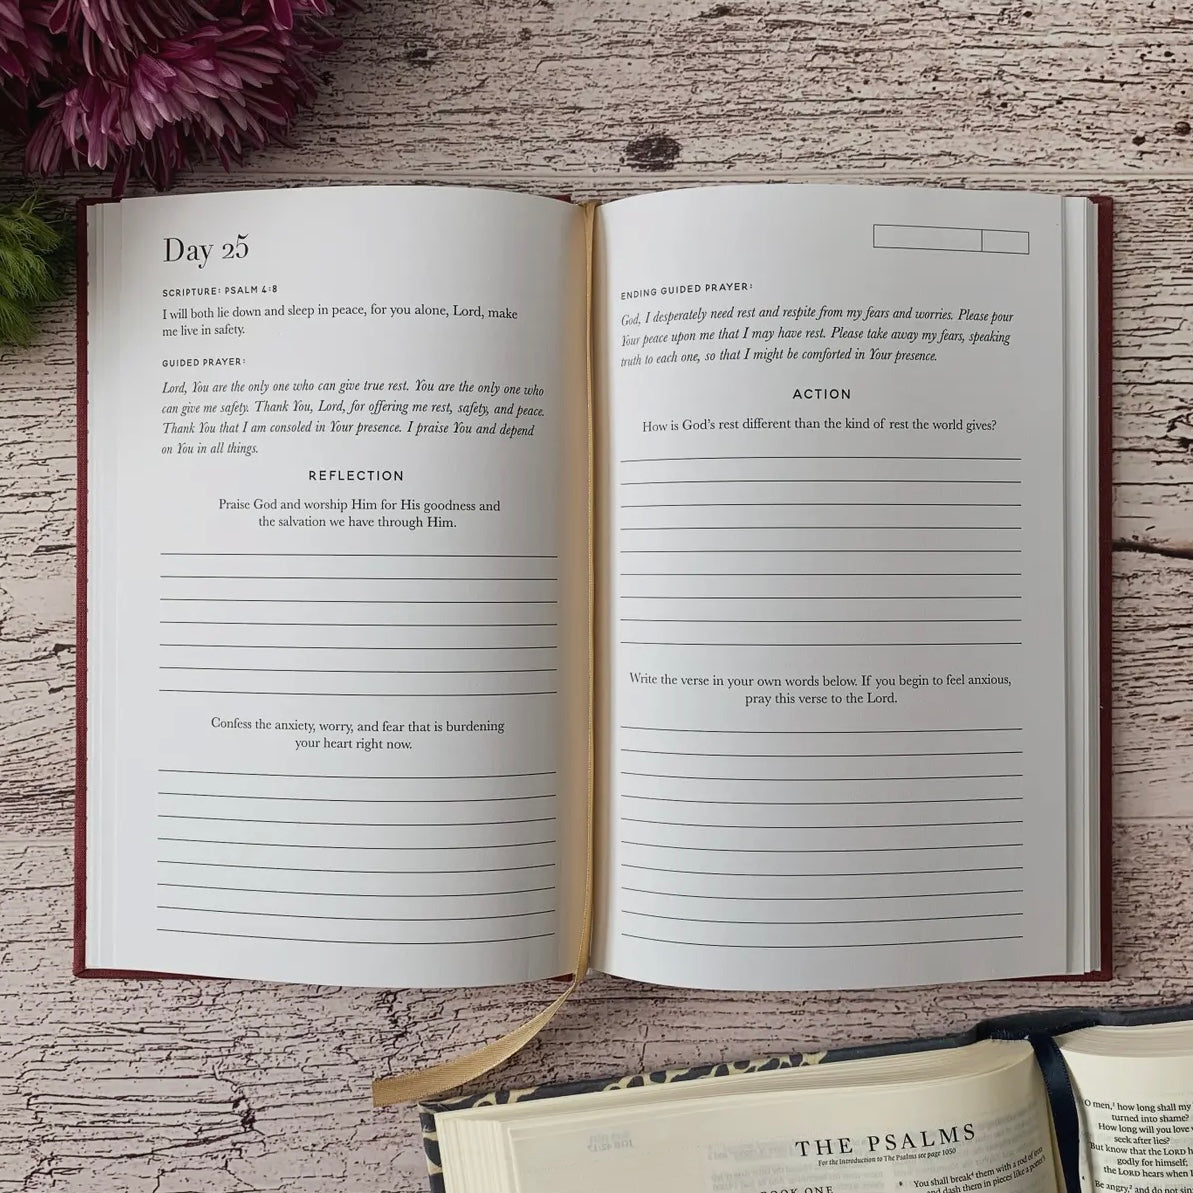 Day 25
SCRIPTURE: PSALM 4:8
I will both lie down and sleep in peace, for you alone, Lord, make
me live in safety.
GUIDED PRAYER:
Lord, You are the only one who can give true rest. You are the only one who
can give me safety. Thank You, Lord, for offering me rest, safety, and peace.
Thank You that I am consoled in Your presence. I praise You and depend
on You in all things.
REFLECTION
Praise God and worship Him for His goodness and
the salvation we have through Him.
Confess the anxiety, worry, and fear that is burdening
your heart right now.
ENDING GUIDED PRAYER:
God, I desperately need rest and respite from my fears and worries. Please pour
Your peace upon me that I may have rest. Please take away my fears, speaking
truth to each one, so that I might be comforted in Your presence.
ACTION
How is God's rest different than the kind of rest the world gives?
Write the verse in your own words below. If you begin to feel anxious,
pray this verse to the Lord.
THE PSALMS
For the Introduction to The Psalms see page 1050
BOOK ONE
You shall break them with a rod of
and dash them in pieces like a potter's
O men, how long shall my
turned into shame?
How long will you love
seek after lies?
But know that the LORD h
godly for himself;
the LORD hears when I
Be angry, and do not sin